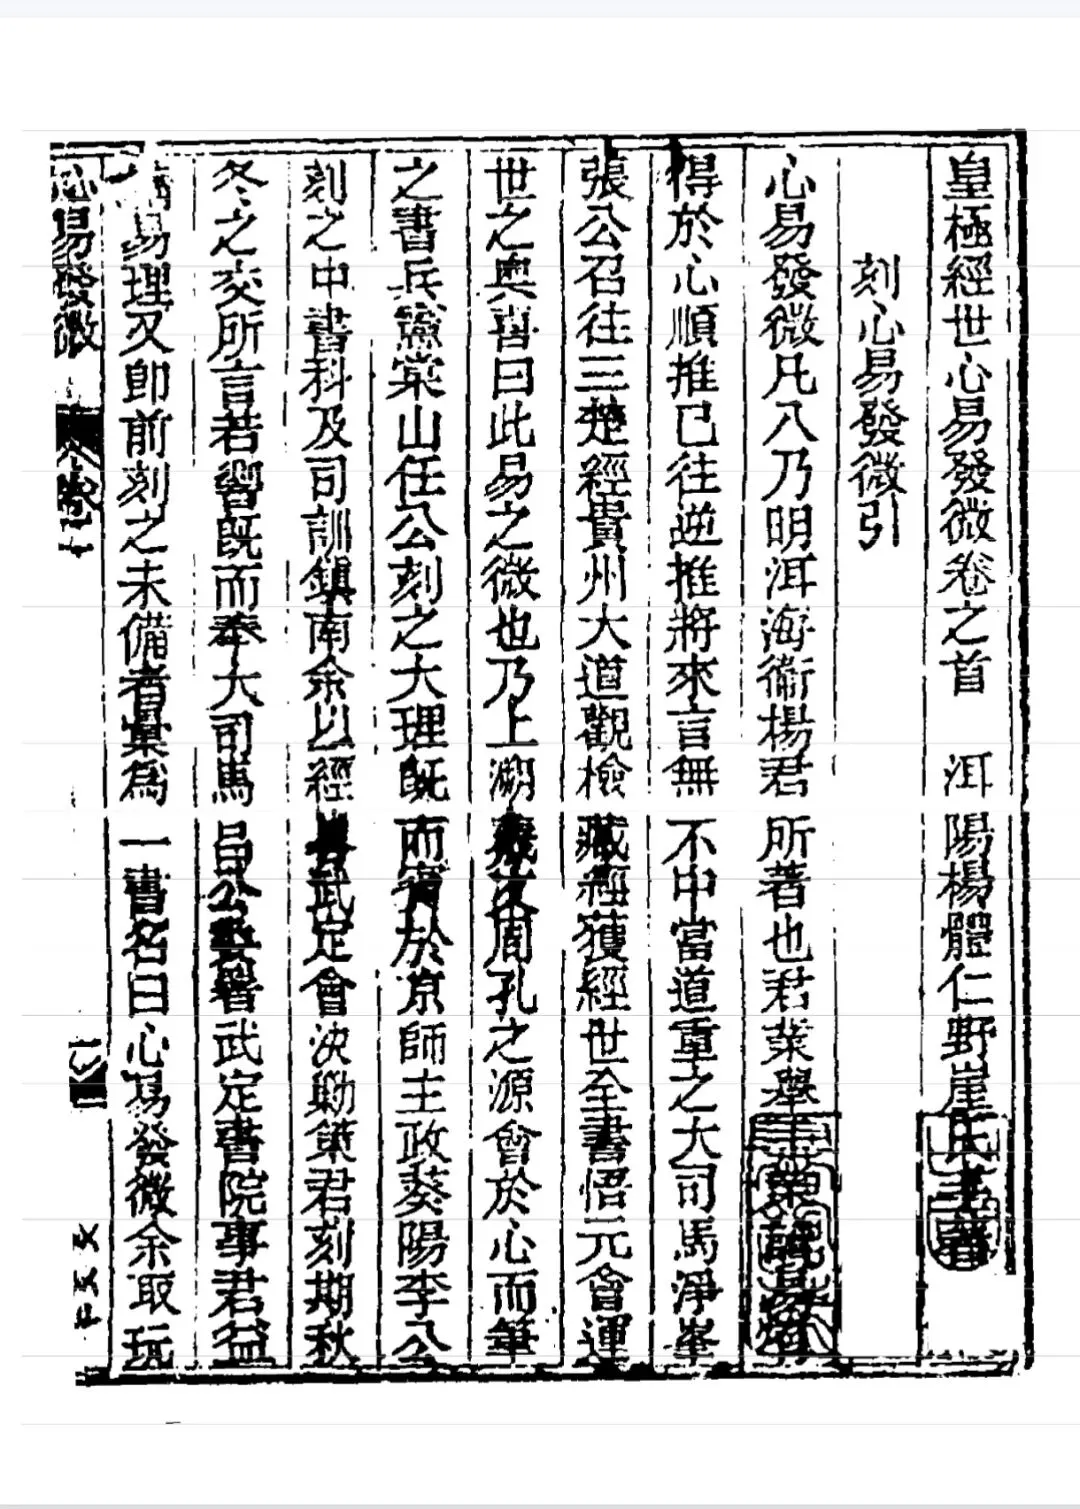 皇極經世心易發微卷之首　洱陽楊體仁野崖氏著
刻心易發微引
心易發微凡八乃明洱海衞楊君所著也君業舉
得於心順推已往逆推將來言無不中當道重之大司馬淨峯
張公召往三楚經貴州大道觀檢藏經獲經世全書悟元會運
世之奧喜曰此易之微也乃上溯羲文周孔之源會於心而筆
之書兵憲棠山任公刻之大理既而賓於京師主政葵陽李公
刻之中書科及司訓鎮南余以經武定會決勦策君刻期秋
冬之交所言若響既而奉大司馬呂公署武定書院事君益
易理又即前刻之未備者彙爲一書名曰心易發微余取玩
心易發微
卷